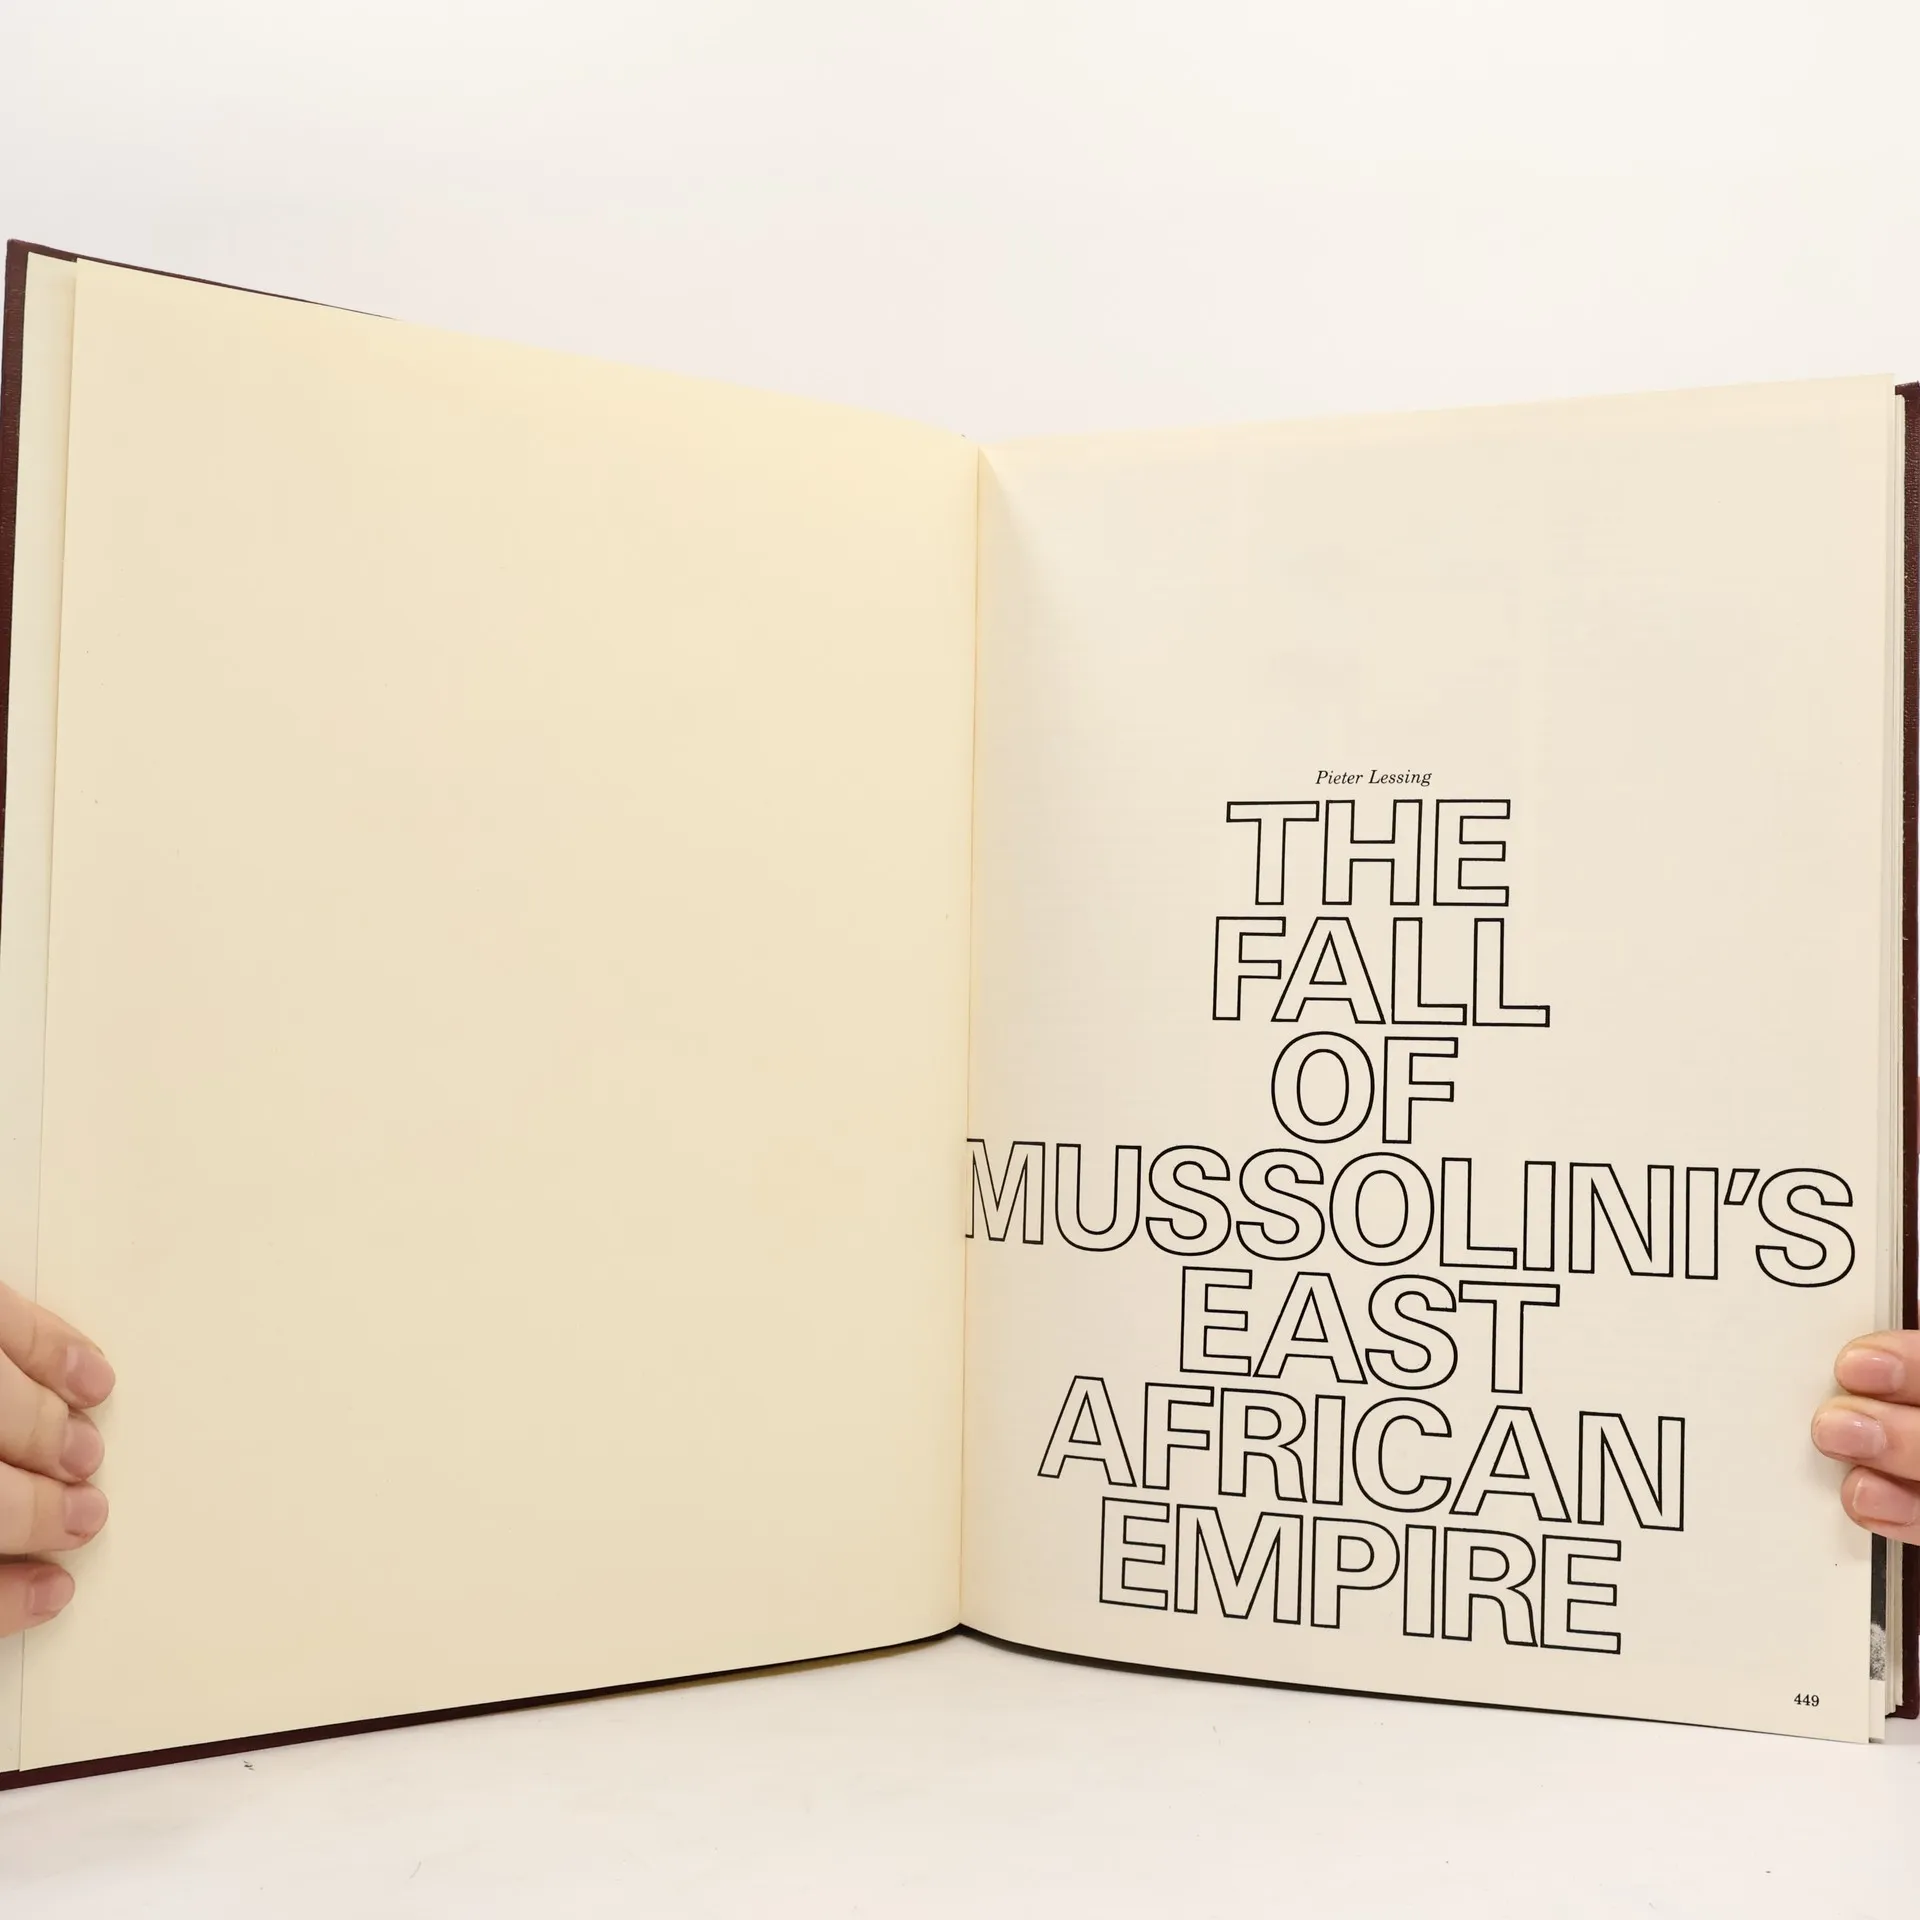 Pieter Lessing
THE
FALL
OF
MUSSOLINI'S
EAST
AFRICAN
EMPIRE
449